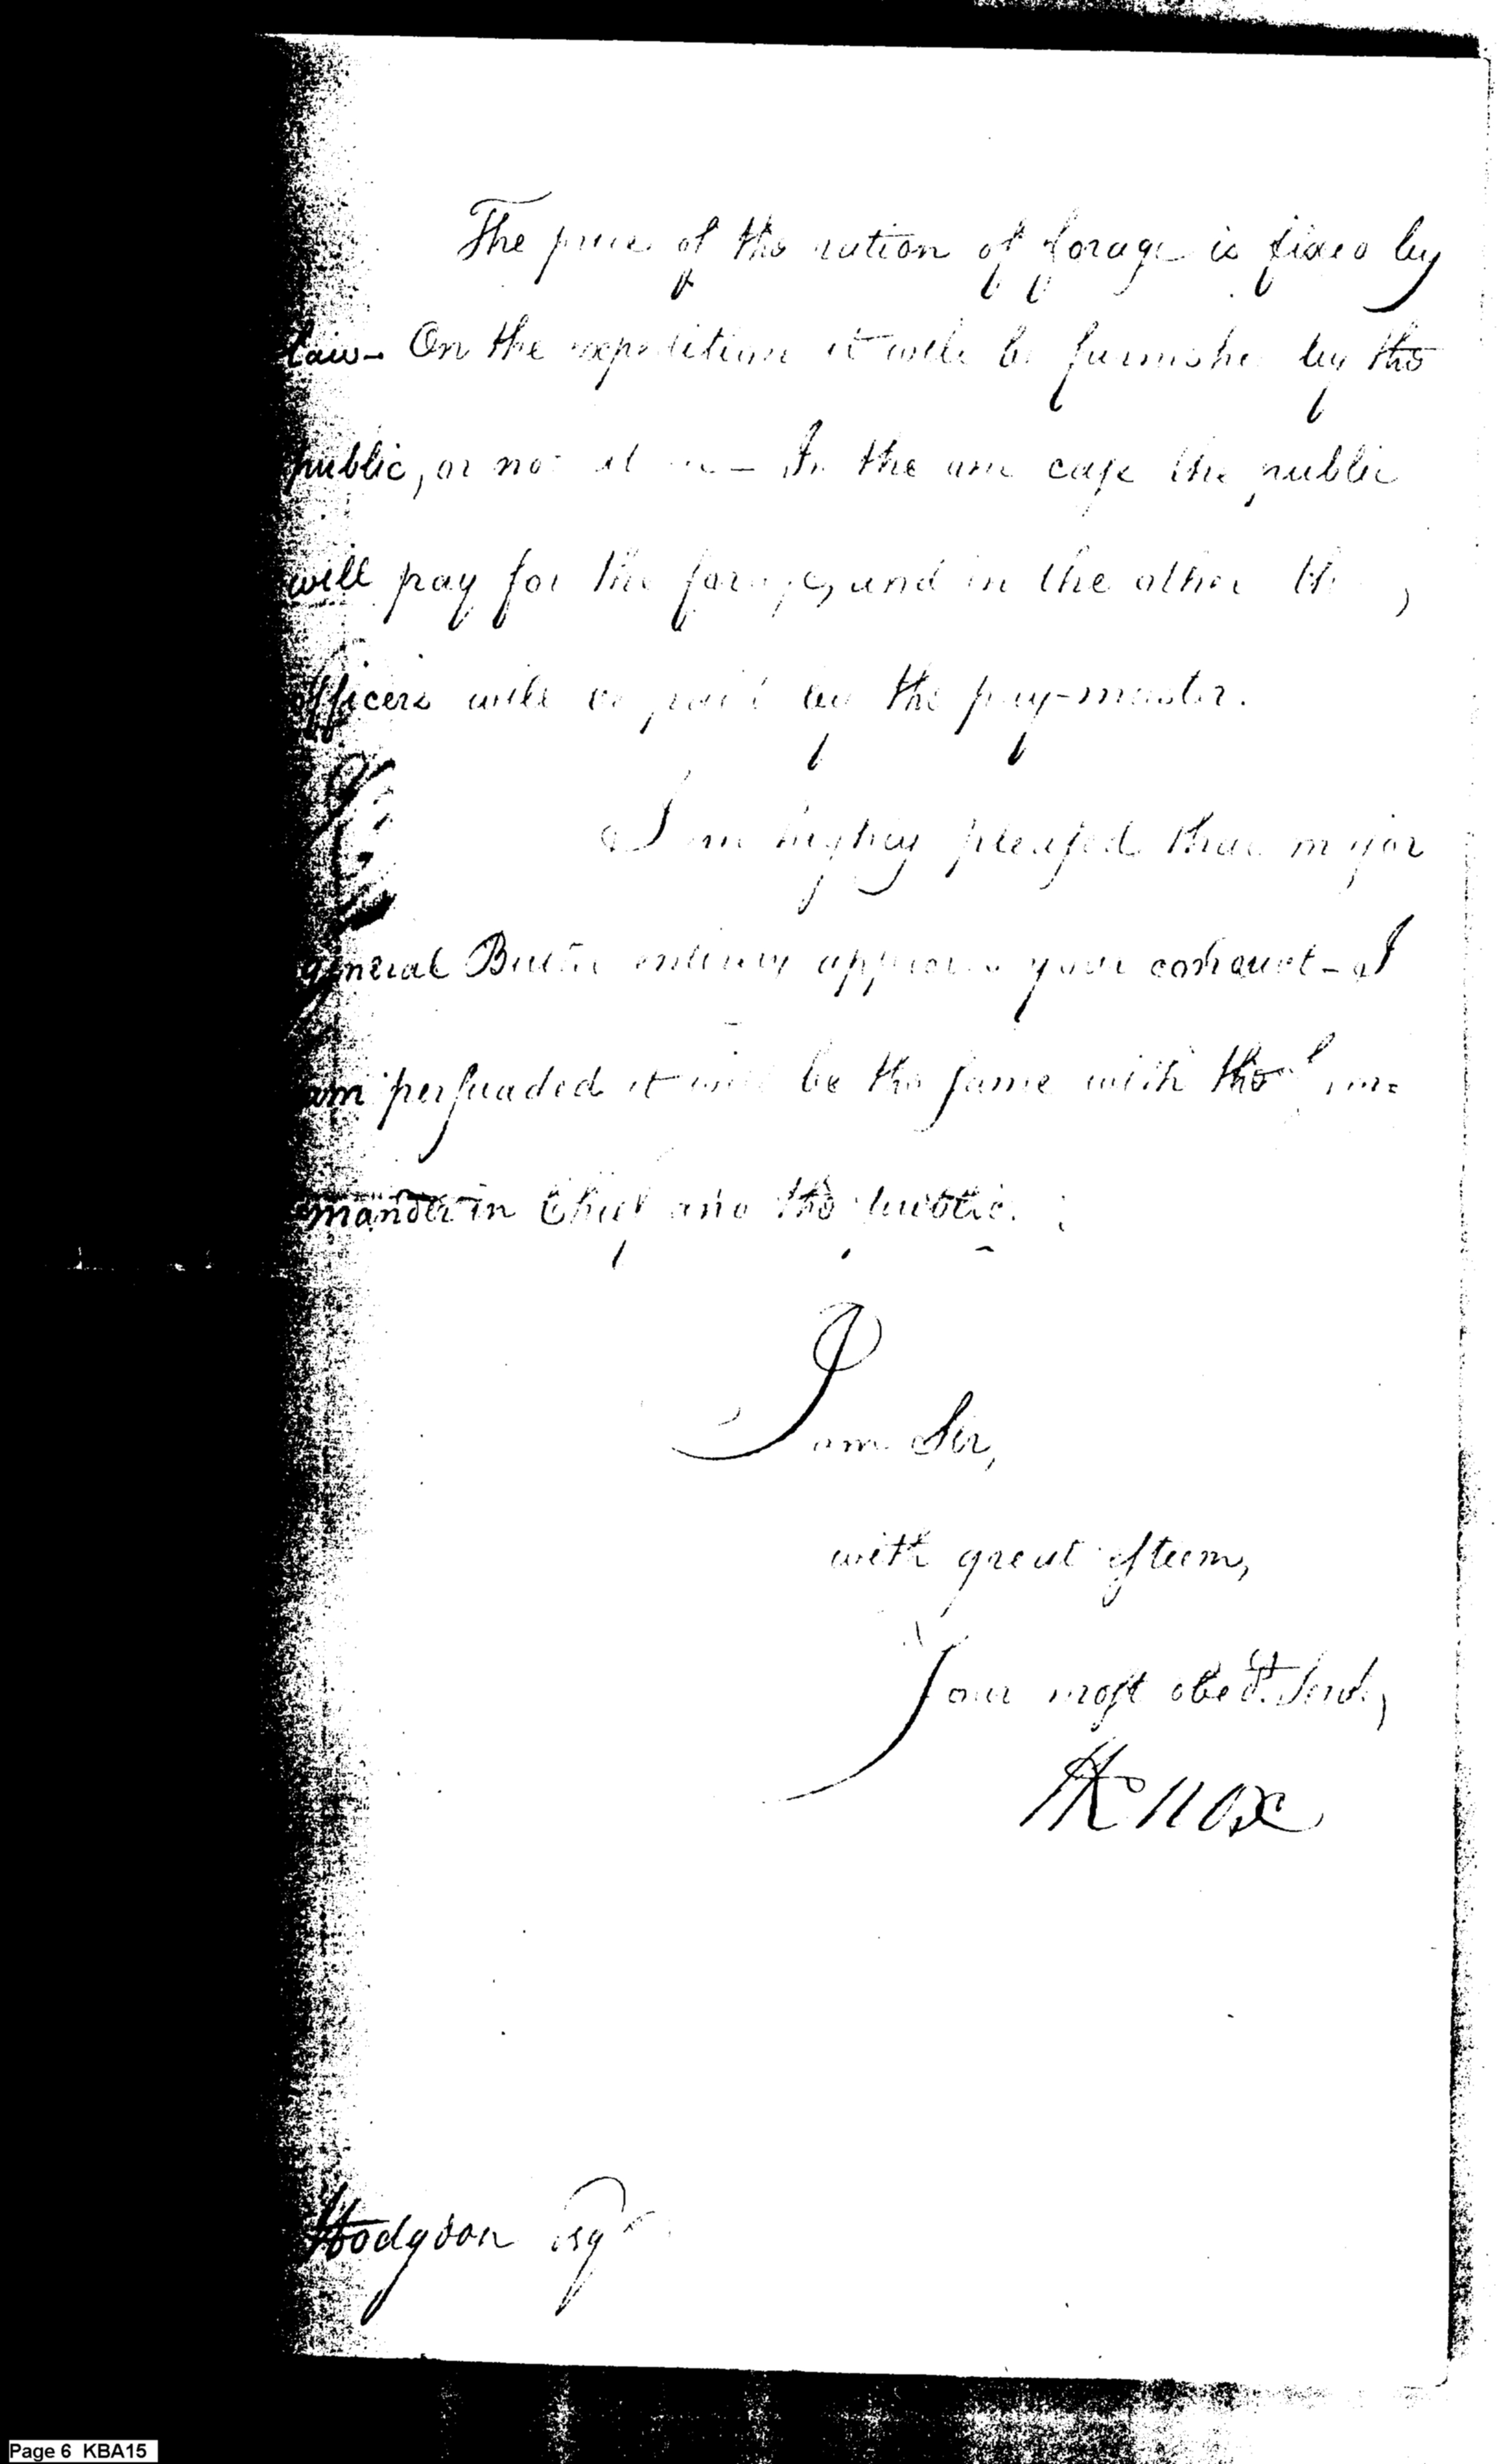 The price of the ration of forage is fixed by
law- On the expedition it will be furnished by the
public, or not at all - In the one case the public
will pay for the forage, and in the other the
officers will be paid by the pay-master.
I am highly pleased that major
general Butler entirely approves your conduct - I
am persuaded it will be the same with the Com=
mander in Chief and the public.
I am Sir,
with great esteem,
Your most obed.t Servt,
HKnox
Hodgdon Esqr
Page 6 KBA15